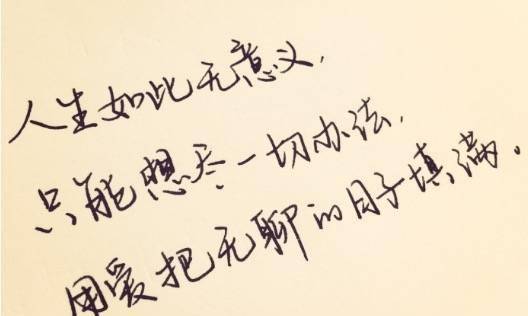 人生如此无意义,
只能想尽一切办法,
用爱把无聊的日子填满。